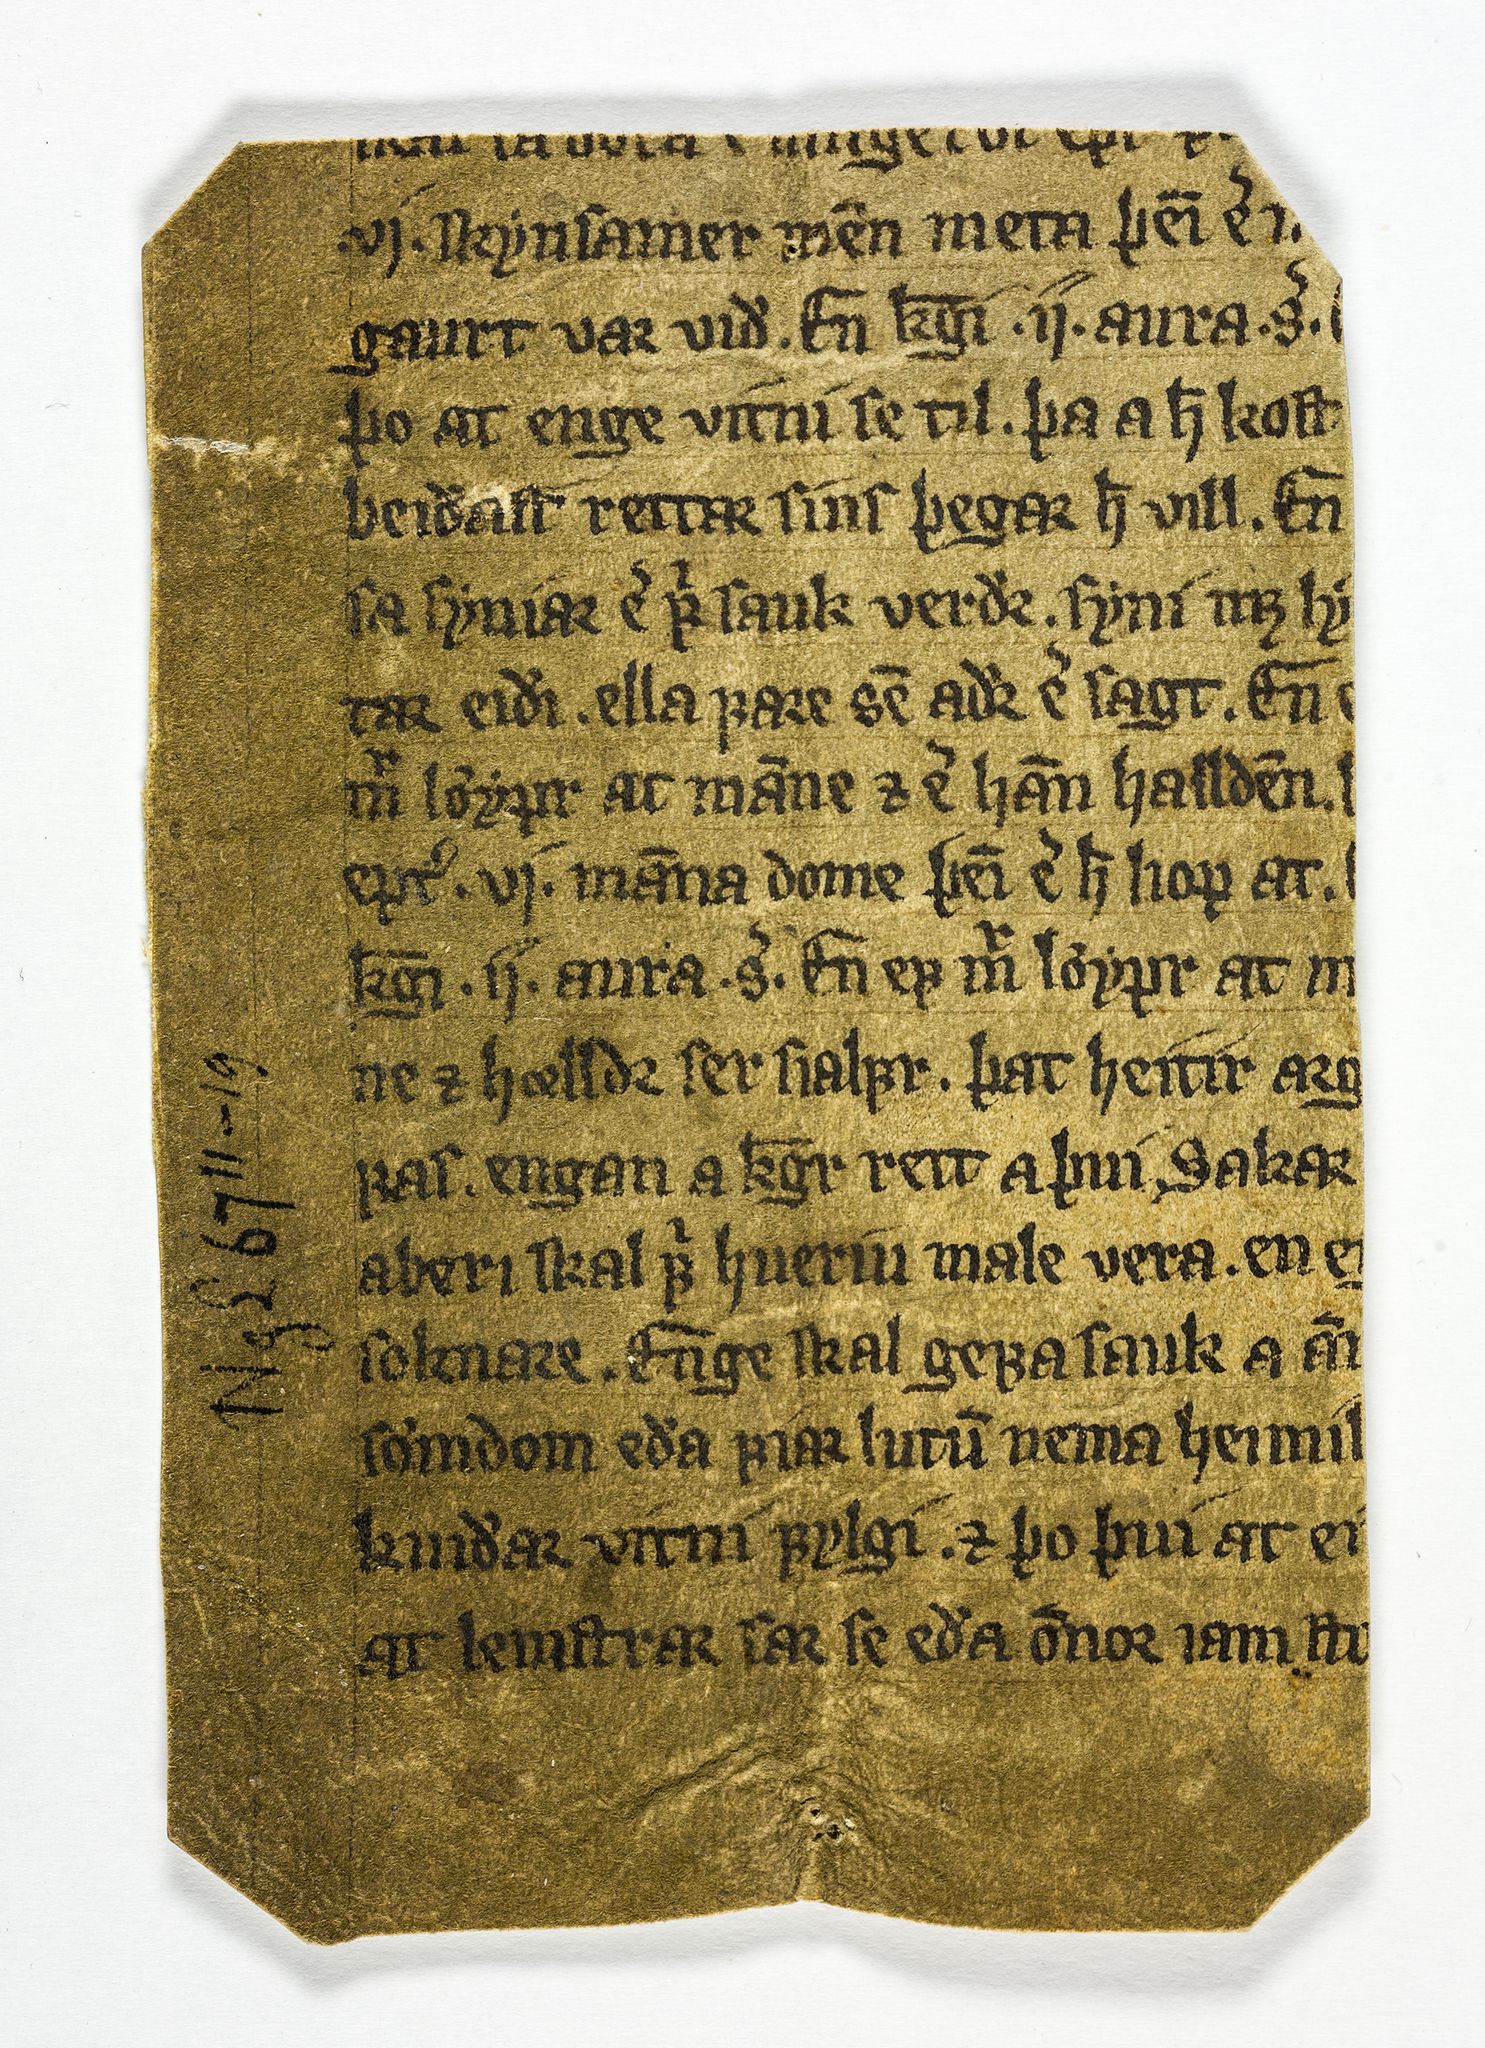 .vj. skynsamer men̄ meta þeī e͛
gaurt var við. En̄ kḡi .ij. aura .s͛.
þo at enge vitni se til. þa a h̄ kost
beiðast rettar sins þegar h̄ vill. En̄
sa syniar e͛ ꝼ͛ sauk verðr. syni ııꝫ ly
tar eiði. ella ꝼare sē aðr e͛ sagt. En̄ e
m͛ lỏypr at mān̄e ⁊ e͛ hān halldēn.
ept͛. vj. mān̄a dome þeī e͛ h̄ liop at.
kḡi .ij. aura .s͛. En̄ eꝼ m͛ lỏypr at m
ne ⁊ hølldr ser sialꝼr. þat heitir arg
ꝼas. engan a kḡr rett a þui. Sakar
aberi skal ꝼ͛ hueriu male vera. en e
soknare. En̄ge skal geꝼa sauk a an̄
sỏmdom eða ꝼiar lutū nema heimil
kuiðar vitni ꝼylgi. ⁊ þo þui at ei
at lemstrar sar se eða ōnor iam st
NgL 67 11-19